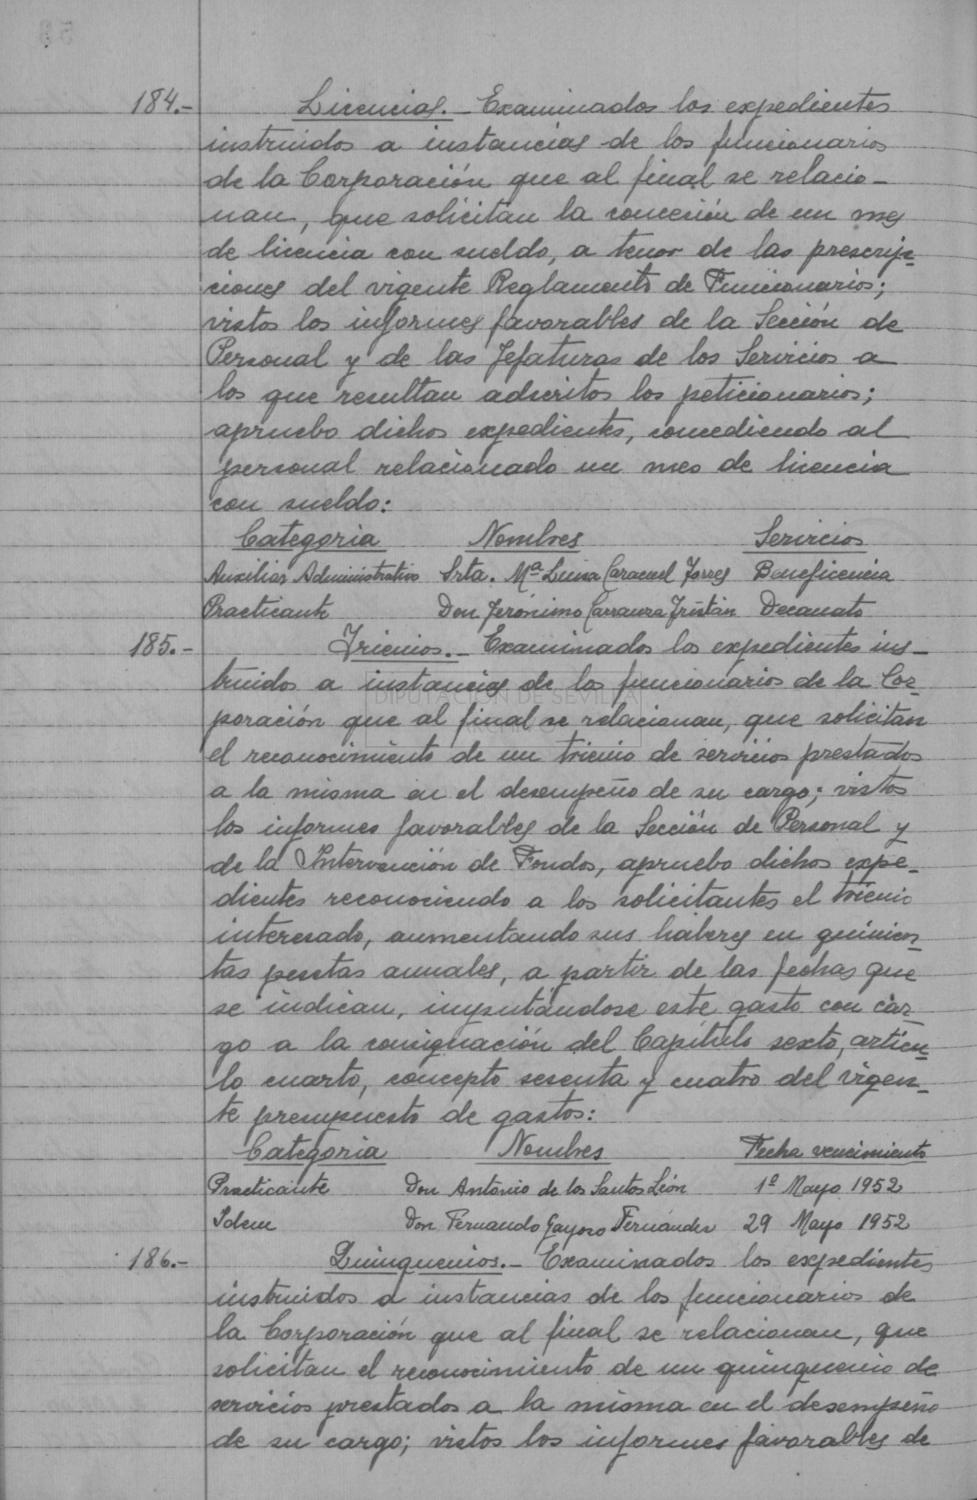 184.- Licencias.- Examinados los expedientes
instruidos a instancias de los funcionarios
de la Corporación que al final se relacio-
nan, que solicitan la concesión de un mes
de licencia con sueldo, a tenor de las prescrip-
ciones del vigente Reglamento de Funcionarios;
vistos los informes favorables de la Sección de
Personal y de las Jefaturas de los Servicios a
los que resultan adscritos los peticionarios;
apruebo dichos expedientes, concediendo al
personal relacionado un mes de licencia
con sueldo:
Categoria Nombres Servicios
Auxiliar Administrativo Srta. Mª Luisa Caracuel Torres Beneficencia
Practicante Don Jerónimo Carranza Tristán Decanato
185.- Trienios.- Examinados los expedientes ins-
truidos a instancias de los funcionarios de la Cor-
DIPUTACIÓN DE SEVILLA
ARCHIVO
poración que al final se relacionan, que solicitan
el reconocimiento de un trienio de servicios prestados
a la misma en el desempeño de su cargo; vistos
los informes favorables de la Sección de Personal y
de la Intervención de Fondos, apruebo dichos expe-
dientes reconociendo a los solicitantes el trienio
interesado, aumentando sus haberes en quinien-
tas pesetas anuales, a partir de las fechas que
se indican, imputándose este gasto con car-
go a la consignación del Capítulo sexto, artícu-
lo cuarto, concepto sesenta y cuatro del vigen-
te presupuesto de gastos:
Categoria Nombres Fecha vencimiento
Practicante Don Antonio de los Santos León 1º Mayo 1952
Idem Don Fernando Gayoso Fernández 29 Mayo 1952
186.- Quinquenios.- Examinados los expedientes
instruidos a instancias de los funcionarios de
la Corporación que al final se relacionan, que
solicitan el reconocimiento de un quinquenio de
servicios prestados a la misma en el desempeño
de su cargo; vistos los informes favorables de